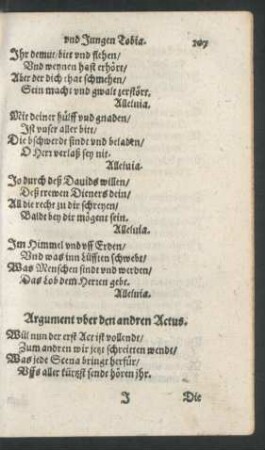 vnd Jungen Tobia. 107
Ihr demut/ bitt vnd flehen/
Vnd weynen hast erhört/
Aber der dich that schmehen/
Sein macht vnd gwalt zerstört.
Alleluia.
Mit deiner hülff vnd gnaden/
Ist vnser aller bitt/
Die bschwerdt sindt vnd beladen/
O Herr verlaß sey nit.
Alleluia.
Jo durch deß Dauids willen/
Deß trewen Dieners dein/
All die recht zu dir schreyen/
Baldt bey dir mögent sein.
Alleluia.
Im Himmel vnd vff Erden/
Vnd was inn Lüfften schwebt/
Was Menschen sindt vnd werden/
Das Lob dem Herren gebt.
Alleluia.
Argument vber den andren Actus.
Will nun der erst Act ist vollendt/
Zum andren wir jetzt schreitten wendt/
Was jede Scena bringt herfür/
Vffs aller kürtzst sendt hören jhr.
J Die